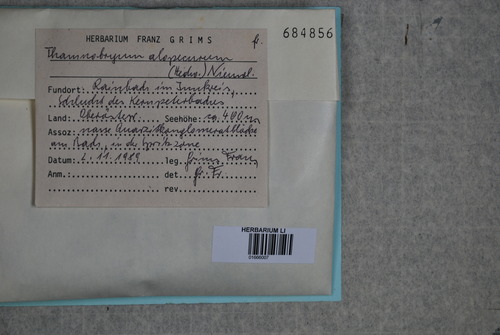 HERBARIUM FRANZ GRIMS f.
684856
Thamnobryum alopecurum
(Hedw.) Nieuwl.
Fundort: Rainbach im Innkreis,
Schlucht des Kernpeterbaches
Land: Oberösterr. Seehöhe: ca. 400 m
Assoz: nasse Quarzitkonglomeratblöcke
am Bach, in der Spritzzone
Datum: 2.11.1989 leg. Grims Franz
Anm. det. Gr. Fr.
rev.
HERBARIUM LI